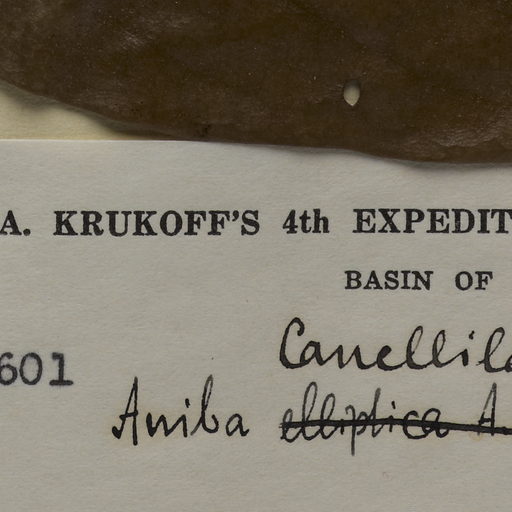 A. KRUKOFF'S 4th EXPEDIT
BASIN OF
Canellil
601
Aniba elliptica A.